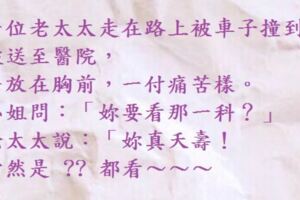 位老太太走在路上被車子撞到
送至醫院，
放在胸前，一付痛苦樣。
姐問：「妳要看那一科？」
太太說：「妳真夭壽！
然是 ?? 都看～～～